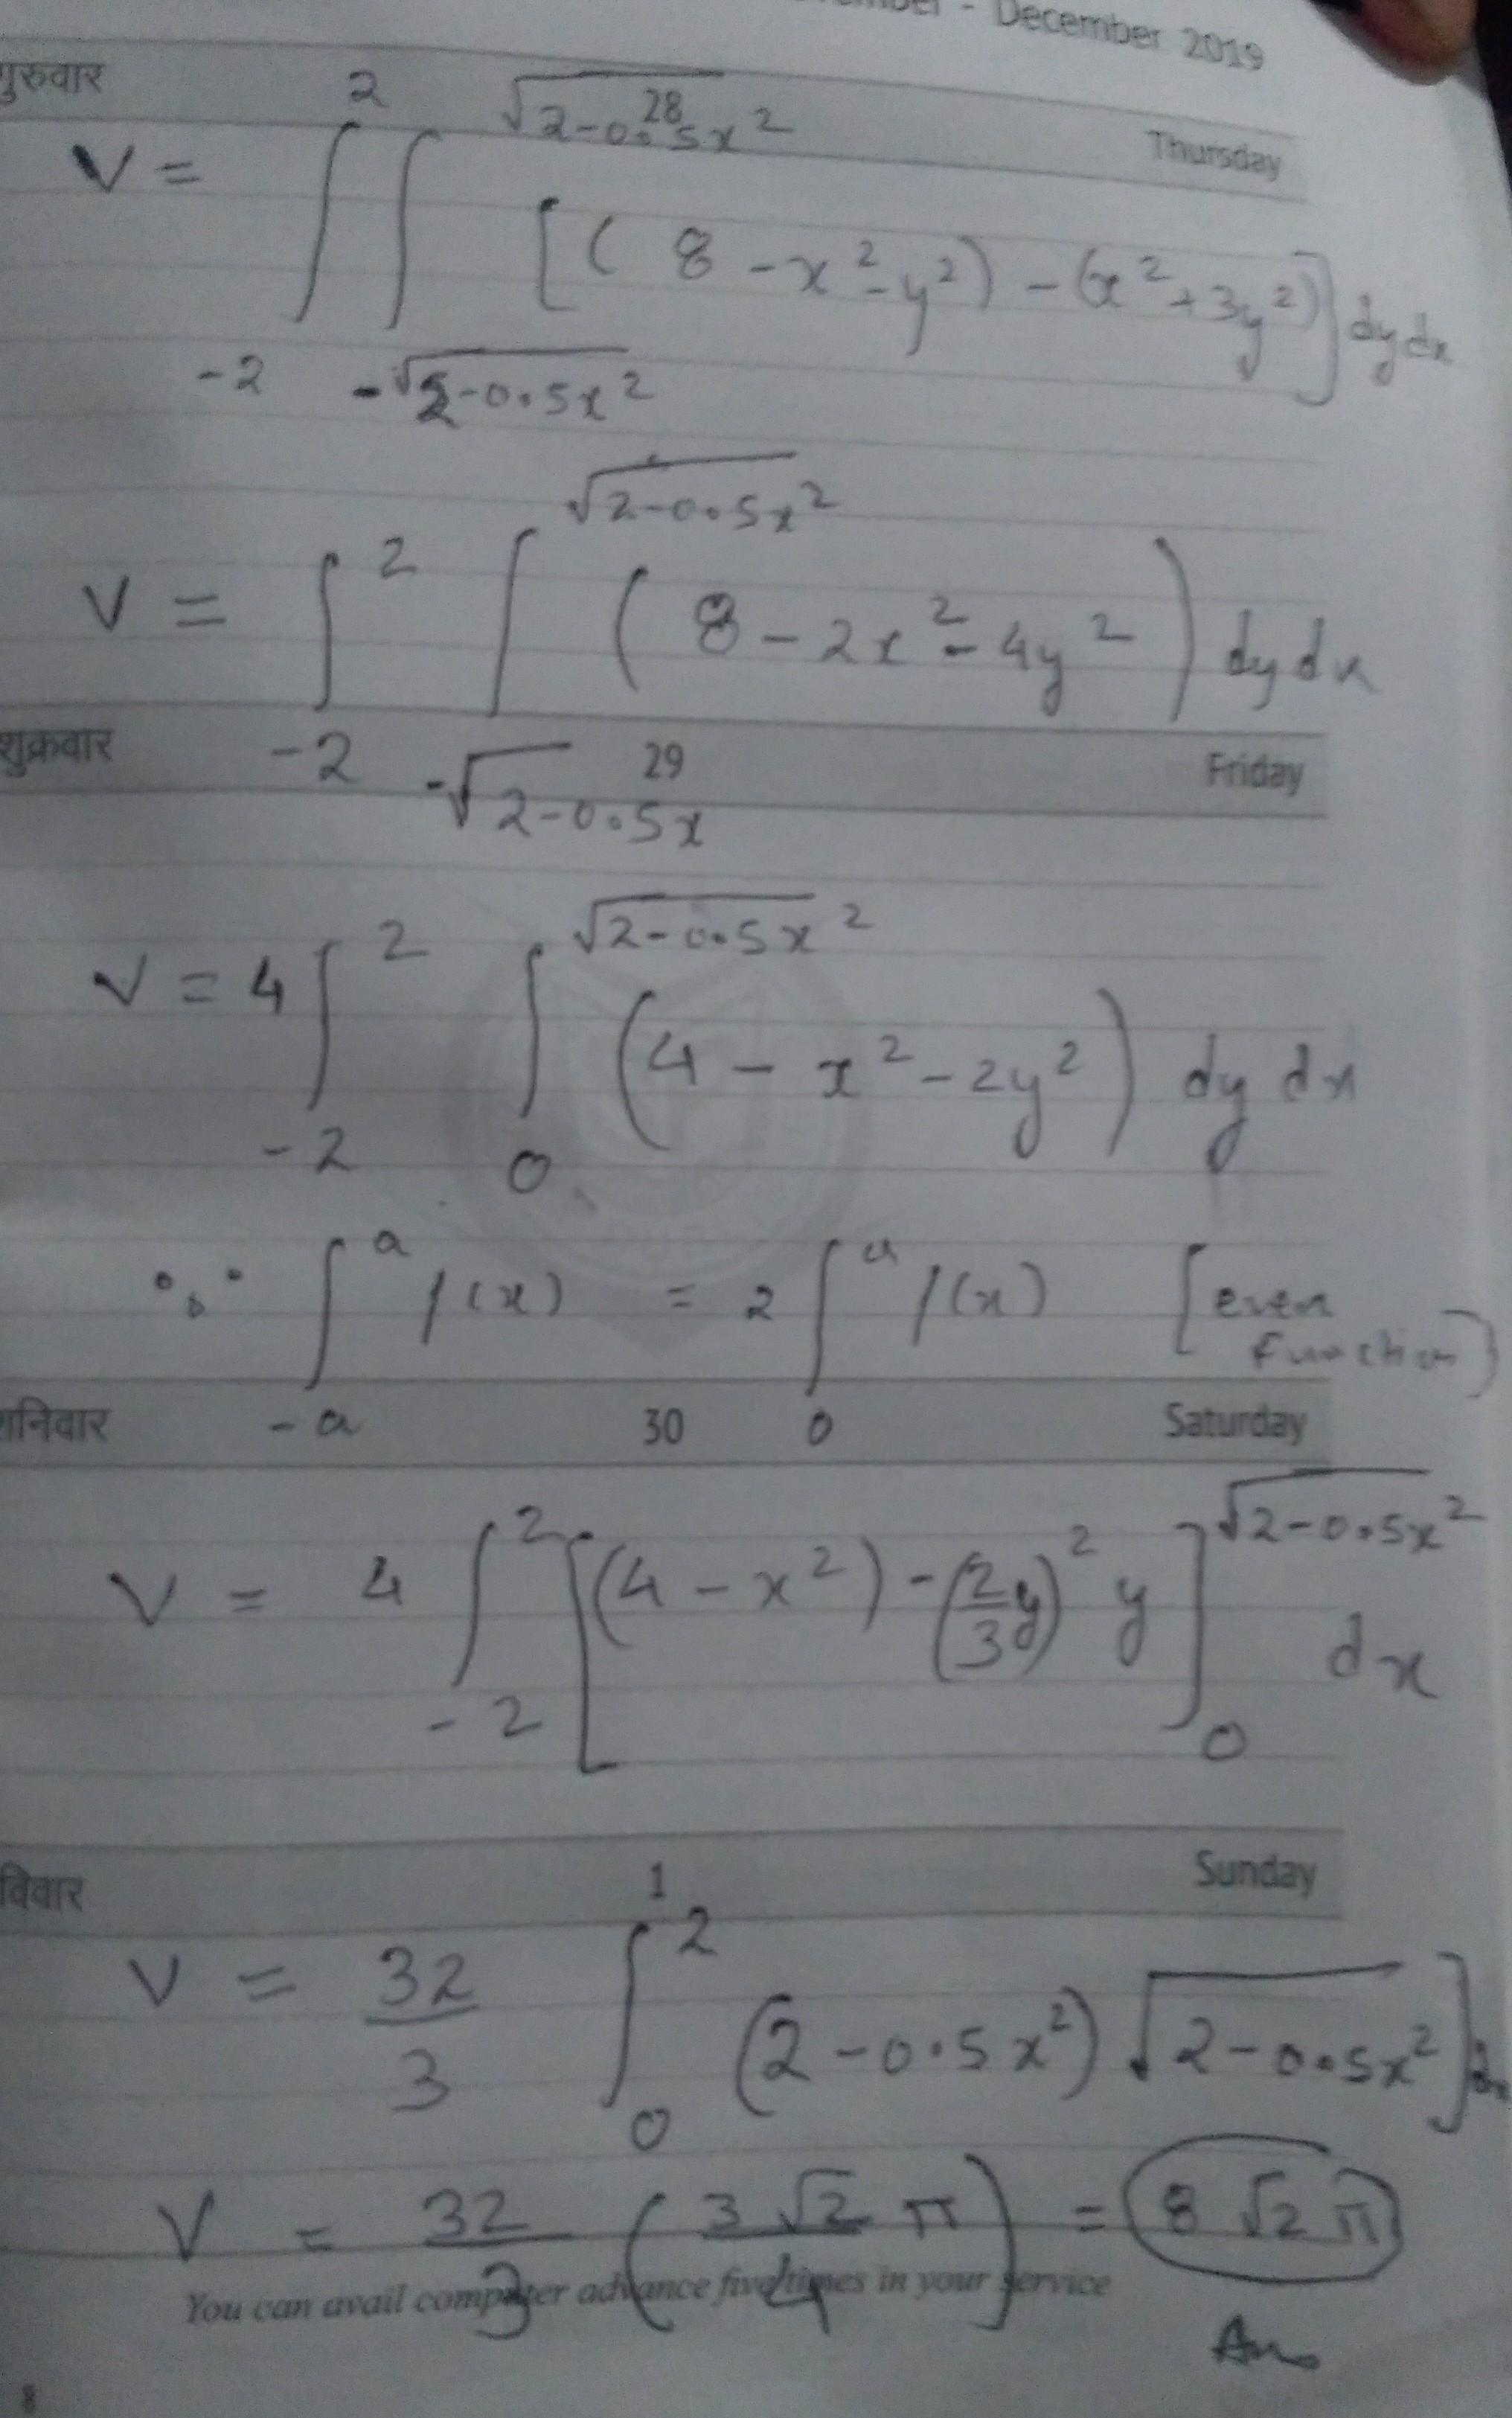 December 2019
गुरुवार 28 Thursday
V = ∫_{-2}^{2} ∫_{-√(2-0.5x²)}^{√(2-0.5x²)} [(8 - x² - y²) - (x² + 3y²)] dy dx
V = ∫_{-2}^{2} ∫_{-√(2-0.5x)}^{√(2-0.5x²)} (8 - 2x² - 4y²) dy dx
शुक्रवार 29 Friday
V = 4 ∫_{-2}^{2} ∫_{0}^{√(2-0.5x²)} (4 - x² - 2y²) dy dx
∵ ∫_{-a}^{a} f(x) = 2 ∫_{0}^{a} f(x) [even
function]
30 Saturday
V = 4 ∫_{-2}^{2} [(4 - x²) - (2/3 y)² y]_{0}^{√(2-0.5x²)} dx
1 Sunday
V = 32/3 ∫_{0}^{2} (2 - 0.5x²) √(2 - 0.5x²) ] dx
V = 32/3 (3√2 π / 4) = 8√2 π
You can avail computer advance five times in your service
Ans
8